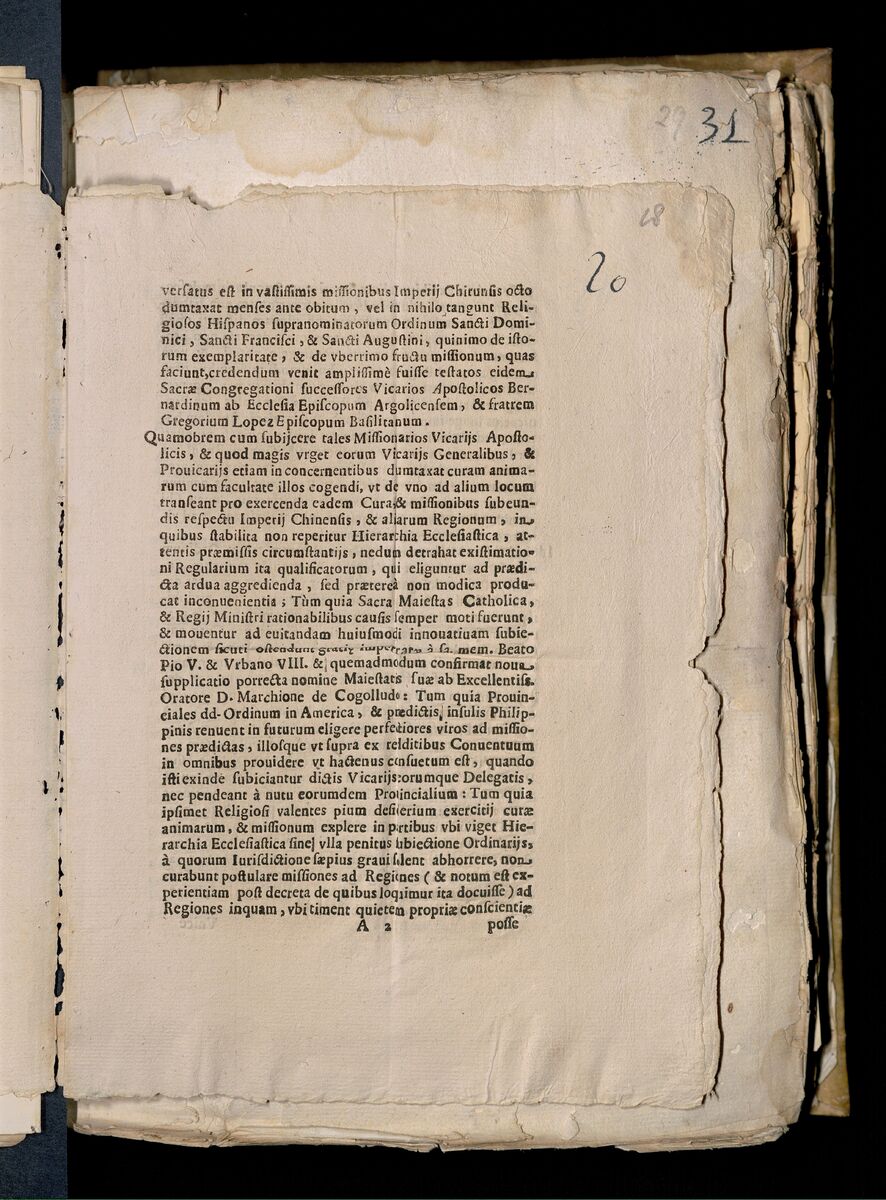 29 31
18
20
versatus est in vastissimis missionibus Imperij Chinensis octo
dumtaxat menses ante obitum, vel in nihilo tangunt Reli-
giosos Hispanos supranominatorum Ordinum Sancti Domi-
nici, Sancti Francisci, & Sancti Augustini, quinimo de isto-
rum exemplaritate, & de vberrimo fructu missionum, quas
faciunt, credendum venit amplissimè fuisse testatos eidem
Sacræ Congregationi successores Vicarios Apostolicos Ber-
nardinum ab Ecclesia Episcopum Argolicensem, & fratrem
Gregorium Lopez Episcopum Basilitanum.
Quamobrem cum subijcere tales Missionarios Vicarijs Aposto-
licis, & quod magis vrget eorum Vicarijs Generalibus, &
Prouicarijs etiam in concernentibus dumtaxat curam anima-
rum cum facultate illos cogendi, vt de vno ad alium locum
transeant pro exercenda eadem Cura, & missionibus subeun-
dis respectu Imperij Chinensis, & aliarum Regionum, in
quibus stabilita non reperitur Hierarchia Ecclesiastica, at-
tentis præmissis circumstantijs, nedum detrahat existimatio-
ni Regularium ita qualificatorum, qui eliguntur ad prædi-
cta ardua aggredienda, sed prætereà non modica produ-
cat inconuenientia; Tùm quia Sacra Maiestas Catholica,
& Regij Ministri rationabilibus causis semper moti fuerunt,
& mouentur ad euitandam huiusmodi innouatiuam subie-
ctionem sicuti ostendunt gratiæ impetratæ à sa. mem. Beato
Pio V. & Vrbano VIII. & quemadmodum confirmat noua
supplicatio porrecta nomine Maiestatis suæ ab Excellentiss.
Oratore D. Marchione de Cogolludo: Tum quia Prouin-
ciales dd. Ordinum in America, & prædictis insulis Philip-
pinis renuent in futurum eligere perfectiores viros ad missio-
nes prædictas, illosque vt supra ex redditibus Conuentuum
in omnibus prouidere vt hactenus consuetum est, quando
isti exinde subiciantur dictis Vicarijs: orumque Delegatis,
nec pendeant à nutu eorumdem Prouincialium: Tum quia
ipsimet Religiosi valentes pium desiderium exercitij curæ
animarum, & missionum explere in partibus vbi viget Hie-
rarchia Ecclesiastica sine vlla penitus subiectione Ordinarijs,
à quorum Iurisdictione sæpius graui solent abhorrere, non
curabunt postulare missiones ad Regiones (& notum est ex-
perientiam post decreta de quibus loquimur ita docuisse) ad
Regiones inquam, vbi timent quietem propriæ conscientiæ
A 2 posse